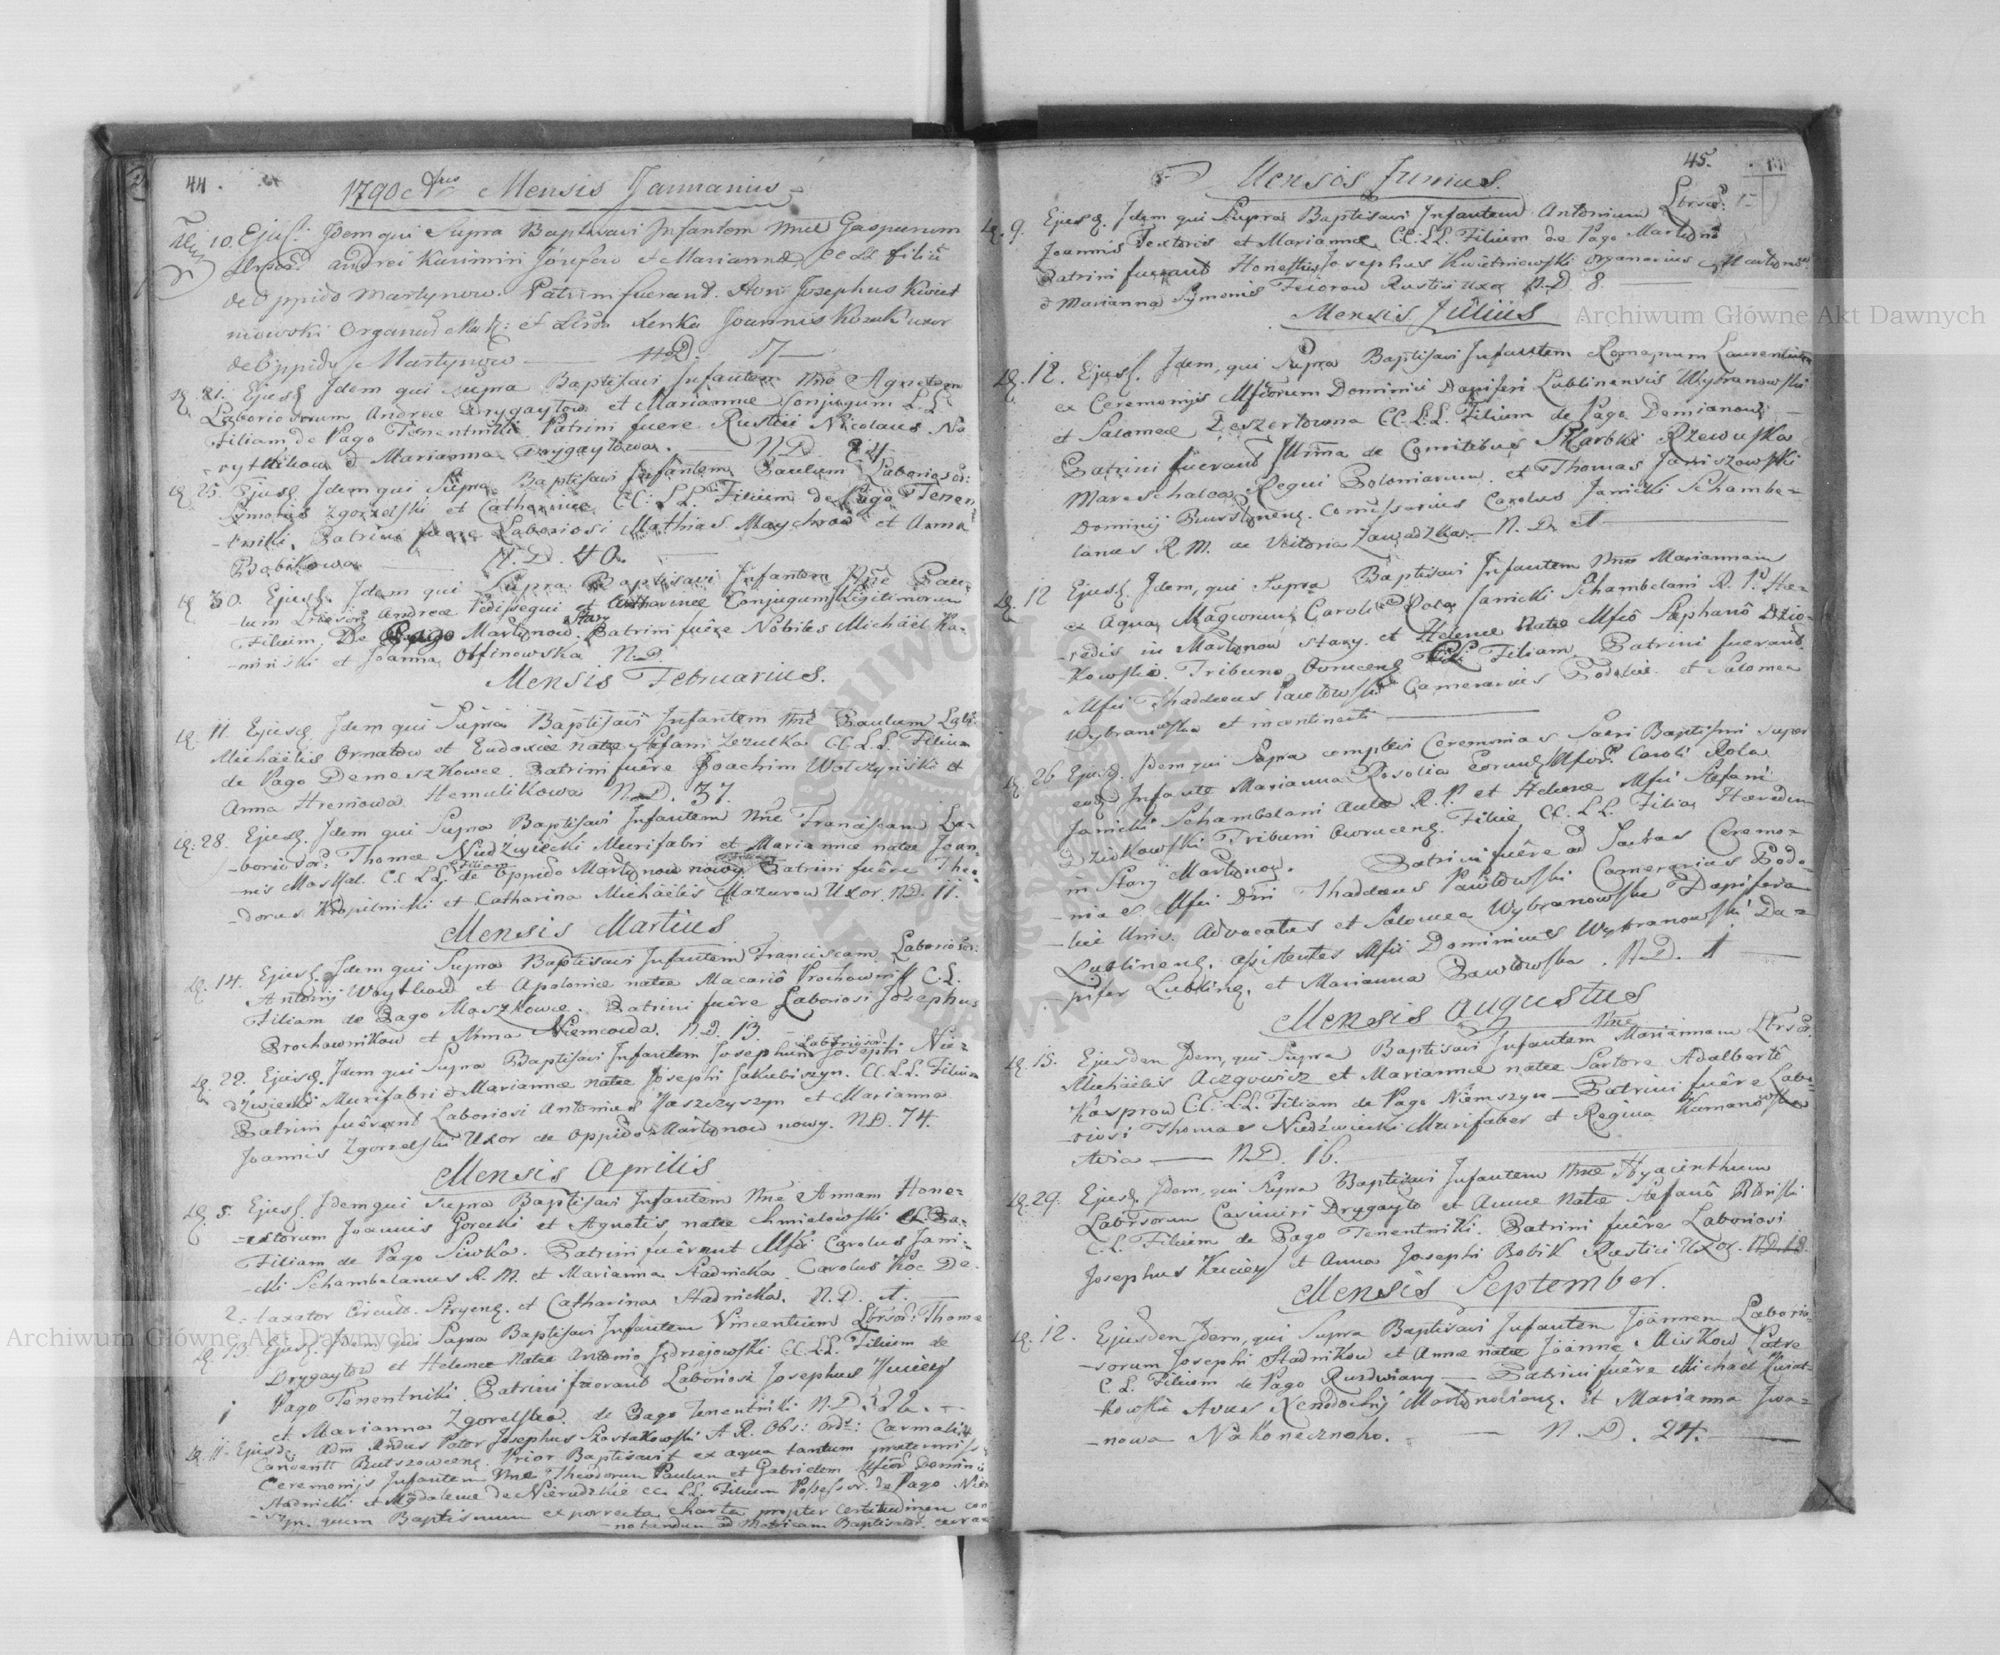 44.
1790 Mensis Januarius
10. Ejusd. Idem qui Supra Baptisavi Infantem Nme Gasparum
Andrei Kazimiri et Mariannæ CC LL filiū
de Oppido Martynow. Patrini fuerant. Hon: Josephus Kwiet
niowski Organar et Joannis Kozak uxor
de Oppido Martynow N.D. 7
21. Ejusd. Idem qui Supra Baptisavi Infantem Nme Agnetem
Laboriosorum Andreæ Drygaytow et Mariannæ Conjugum L.L.
Filiam de Pago Tenentniki. Patrini fuere Rustici Nicolaus
et Marianna Drygaytowa. N.D. 24
25. Ejusd. Idem qui Supra Baptisavi Infantem Paulum Laboriosor:
Symonis Zgorzelski et Catharinæ CC: LL: Filium de Pago Tenen
-tniki. Patrini fuere Laboriosi Mathias Maychrow et Anna
Bobikowa N.D. 40.
30. Ejusd. Idem qui Supra Baptisavi Infantem Nme Pau-
-lum Andreæ Pedissequi et Catharinæ Conjugum Legitimorum
Filium. De Pago Martynow Stary Patrini fuêre Nobiles Michael Ka-
-minski et Joanna N.D.
Mensis Februarius.
11. Ejusd. Idem qui Supra Baptisavi Infantem Nme Paulum Lab:
Michaëlis Ornatow et Eudoxiæ natæ Stefani Zezulka CC. L.L. Filium
de Pago Demeszkowce. Patrini fuêre Joachim Wolczynski et
Anna Hreniowa Hemulikowa N.D. 37.
28. Ejusd. Idem qui Supra Baptisavi Infantem Nme Franciscam La-
-boriosor: Thomæ Niedzwiecki Murifabri et Mariannæ natæ Joan-
-nis CC LL Filiam de Oppido Martynow nowy. Patrini fuêre Theo-
-dorus Kropilnicki et Catharina Michaëlis Mazurow Uxor. N.D. 11.
Mensis Martius
14. Ejusd. Idem qui Supra Baptisavi Infantem Franciscam Laboriosor:
Antonij Woytkow et Apoloniæ natæ Macariô Prochownik C.L.
Filiam de Pago Maszkowce. Patrini fuêre Laboriosi Josephus
Prochownikow et Anna Niemcowa. N.D. 13.
22. Ejusd. Idem qui Supra Baptisavi Infantem Josephum Laboriosor: Josephi Nie-
dzwiecki Murifabri et Mariannæ natæ Josephi Jakubiszyn. CC. L.L. Filium
Patrini fuêrant Laboriosi Antonius Jaszczyszyn et Marianna
Joannis Zgorzelski Uxor de Oppido Martynow nowy. N.D. 74.
Mensis Aprilis
5. Ejusd. Idem qui Supra Baptisavi Infantem Nme Annam Hone-
-storum Joannis Gorecki et Agnetis natæ Chmielowski
Filiam de Pago Siwka. Patrini fuêrunt Mfci Carolus Jani-
-cki Schambelanus R.M. et Marianna Stadnicka. Carolus Koc De
2. -taxator Circuli Stryens. et Catharina Stadnicka. N.D. 1.
13. Ejusd. Idem qui Supra Baptisavi Infantem Vincentium Lbrsor: Thomæ
Drygaytow et Helenæ natæ Antonio Jędrzejowski CC. LL. Filium de
Pago Tenentniki. Patrini fuerant Laboriosi Josephus Kuciey
et Marianna Zgorelska. de Pago Tenentniki N.D. 22.
11. Ejusd. Adm Rndus Pater Josephus Szostakowski A.R. Obs: Ord: Carmelit
Conventt Butszowcens. Prior Baptisavit ex aqua tantum prætermissis
Ceremonijs Infantem Nme Theodorum Paulum et Gabrielem Mfcor Dominic
Stadnicki et Magdalenæ de Nierudzkie CC. LL. Filium Possessor. de Pago Niem
-szyn. quem Baptismum ex porrecta Charta propter certitudinem con
-notandum ad Matricam Baptisator: curav
45.
Mensis Junius.
9. Ejusd. Idem qui Supra Baptisavi Infantem Antonium Lbrsor:
Joannis Textoris et Mariannæ CC. LL. Filium de Pago Martynô
Patrini fuerant Honestus Josephus Kwietniowski Organarius Martynô
et Marianna Symonis Feiorow Rustici uxor N.D. 8.
Mensis Julius
12. Ejusd. Idem, qui Supra Baptisavi Infantem Romanum Laurentium
ex Ceremonijs Mfcorum Dominici Dapiferi Lublinensis Wybranowski
et Salomeæ Deszertowna CC. L.L. Filium de Pago Demianow
Patrini fuerant Illma de Comitibus Skarbki Rzewuska
Mareschalca Regni Poloniarum. et Thomas Janiszowski
Dominij Bursztynens. Comissarius Carolus Janicki Schambe-
lanus R.M. ac Victoria Zawadzka. N.D. 1
12 Ejusd. Idem, qui Supra Baptisavi Infantem Nme Mariannam
ex Aqua, Magcorum Caroli Rola Janicki Schambelani R.P. Hæ-
-redis in Martynow stary. et Helenæ natæ Mfcô Stephanô Dzio-
-kowski. Tribuno Owrucens. CC. LL. Filiam Patrini fuerant
Mfci Thaddæus Pawlowski Camerarius Podoliæ. et Salomea
Wybranowska et incontinenti
26 Ejusd. Idem qui Supra complevi Ceremonias Sacri Baptismi super
ead. Infante Marianna Rosolia eorund. Mfcor. Caroli Rola
Janicki Schambelani Aulæ R.P. et Helenæ Mfci Stefani
Dziokowski Tribuni Owrucens. Filiæ, CC. L.L. Filia Hæredum
in Stary Martynow. Patrini fuêre ad Sacras Ceremo-
-nias. Mfci Dni Thaddæus Pawlowski Camerarius Podo-
-liæ Univ. Advocatus et Salomea Wybranowska Dapifera
Lublinens. assistentes Mfci Dominicus Wybranowski Da-
-pifer Lublins. et Marianna Pawlowska. N.D. 1
Mensis Augustus
15. Ejusdem Idem, qui Supra Baptisavi Infantem Nme Mariannam Lbrsor.
Michaëlis Aczgowicz et Mariannæ natæ Sartore Adalbertô
Kasprow CC: LL: Filiam de Pago Niemszyn Patrini fuêre Labo-
-riosi Thomas Niedzwiecki Murifaber et Regina Kumanowska
Avia N.D. 16.
29. Ejusd. Idem, qui Supra Baptisavi Infantem Nme Hyacinthum
Labrsorum Casimiri Drygayto et Annæ natæ Stefanô
C.L. Filium de Pago Tenentniki. Patrini fuêre Laboriosi
Josephus Kuciey et Anna Josephi Bobik Rustici Uxor. N.D. 18.
Mensis September.
12. Ejusdem Idem, qui Supra Baptisavi Infantem Joannem Laborio-
-sorum Josephi Stadnikow et Annæ natæ Joanne Miskow Patre
C.L. Filium de Pago Ruzdwiany Patrini fuêre Michael Kwiat-
-kowski Avus Xenodochij Martynoviens. et Marianna Iwa-
-nowa Nakonecznaho. N.D. 24.
Archiwum Główne Akt Dawnych
Archiwum Główne Akt Dawnych